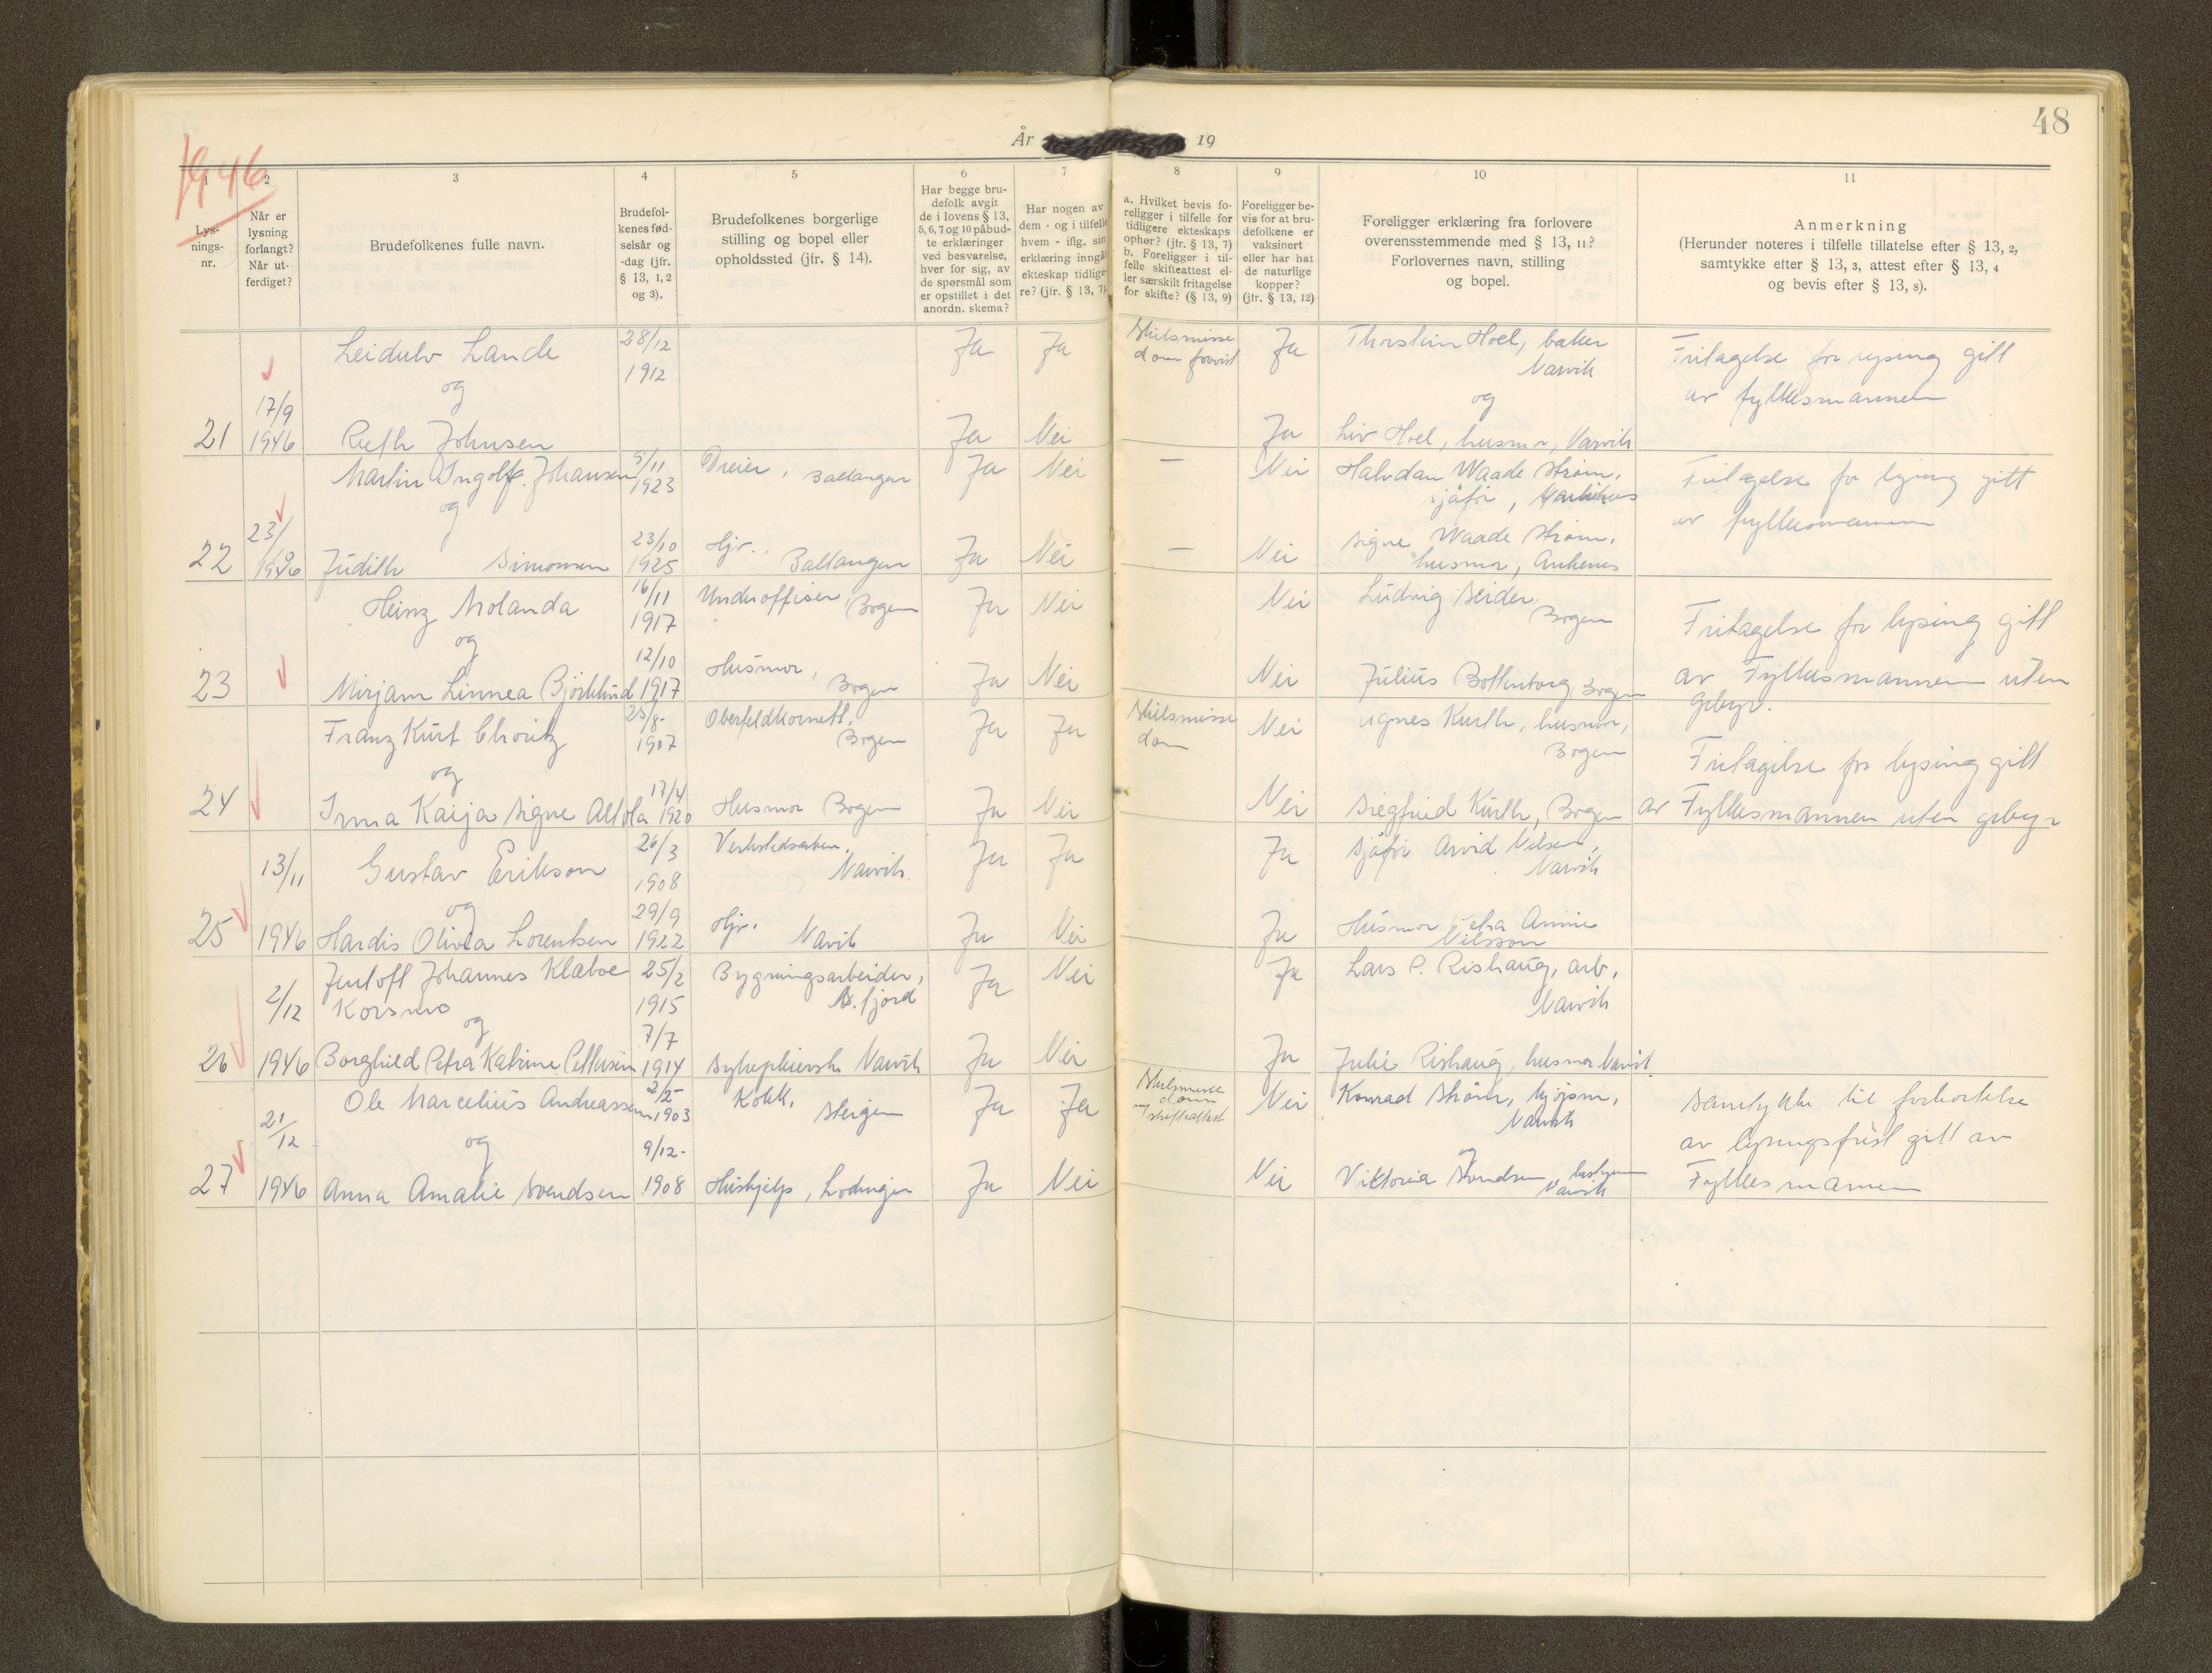 48
År 19
1946
1 2 3 4 5 6 7 8 9 10 11
Lys-
nings-
nr.
Når er
lysning
forlangt?
Når ut-
ferdiget?
Brudefolkenes fulle navn.
Brudefol-
kenes fød-
selsår og
-dag (jfr.
§ 13, 1, 2
og 3).
Brudefolkenes borgerlige
stilling og bopel eller
opholdssted (jfr. § 14).
Har begge bru-
defolk avgit
de i lovens § 13,
5, 6, 7 og 10 påbud-
te erklæringer
ved besvarelse,
hver for sig, av
de spørsmål som
er opstillet i det
anordn. skema?
Har nogen av
dem - og i tilfelle
hvem - iflg. sin
erklæring inngåt
ekteskap tidlige-
re? (jfr. § 13, 7)
a. Hvilket bevis fo-
religger i tilfelle for
tidligere ekteskaps
ophør? (jfr. § 13, 7)
b. Foreligger i til-
felle skifteattest el-
ler særskilt fritagelse
for skifte? (§ 13, 9)
Foreligger be-
vis for at bru-
defolkene er
vaksinert
eller har hat
de naturlige
kopper?
(jfr. § 13, 12)
Foreligger erklæring fra forlovere
overensstemmende med § 13, 11?
Forlovernes navn, stilling
og bopel.
Anmerkning
(Herunder noteres i tilfelle tillatelse efter § 13, 2,
samtykke efter § 13, 3, attest efter § 13, 4
og bevis efter § 13, 8).
Leidulv Lande 28/12 Ja Ja Skilsmisse Ja Thorstein Hoel, baker Fritagelse for lysing gitt
1912 dom Narvik
og og av fylkesmannen
17/9
21 1946 Ruth Johnsen Ja Nei Ja Liv Hoel, husmor, Narvik
Martin Ingolf Johansen 5/11 Dreier, Ballangen Ja Nei — Nei Halvdan Waade Strøm, Fritagelse for lysing gitt
1923 sjåfør,
og av fylkesmannen
23/9
22 1946 Judith Simonsen 23/10 Hjv. Ballangen Ja Nei — Nei Signe Waade Strøm,
1925 husmor, Ankenes
Heinz Molanda 16/11 Underoffiser, Bogen Ja Nei Nei Ludvig Seider, Fritagelse for lysing gitt
1917 Bogen
og
23 Mirjam Linnea Bjørklund 12/10 Husmor, Bogen Ja Nei Nei Julius Bottenborg Bogen av Fylkesmannen uten
1917 gebyr.
Franz Kurt Choritz 25/8- Oberfeldkornett, Ja Ja Skilsmisse Nei Agnes Kurth, husmor,
1907 Bogen dom Bogen
og Fritagelse for lysing gitt
24 Irma Kaija Signe Altola 17/4 Husmor Bogen Ja Nei Nei Siegfried Kurth, Bogen av Fylkesmannen uten gebyr
1920
13/11 Gustav Erikson 26/3 Verkstedsarbeider, Ja Ja Ja Sjåfør Arvid Nilsen,
1908 Narvik Narvik
og
25 1946 Hardis Olivia Lorentsen 29/9 Hjv. Narvik Ja Nei Ja Husmor Annie
1922 Nilsson
2/12 Jentoft Johannes Klæboe 25/2 Bygningsarbeider, Ja Nei Ja Lars P. Rishaug, arb,
Korsmo 1915 B. fjord Narvik
og
26 1946 Borghild Petra Katrine Pettersen 7/7 Sykepleierske Narvik Ja Nei Ja Julie Rishaug, husmor Narvik.
1914
21/12 Ole Marcelius Andreassen 2/2- Kokk, Steigen Ja Ja Skilsmisse Nei Konrad Strøm, kjøpm, Samtykke til forkortelse
1903 dom skifteattest Narvik
og og av lysningsfrist gitt av
27 1946 Anna Amalie Svendsen 9/12- Hushjelp, Lødingen Ja Nei Nei Viktoria Svendsen, Narvik Fylkesmannen
1908